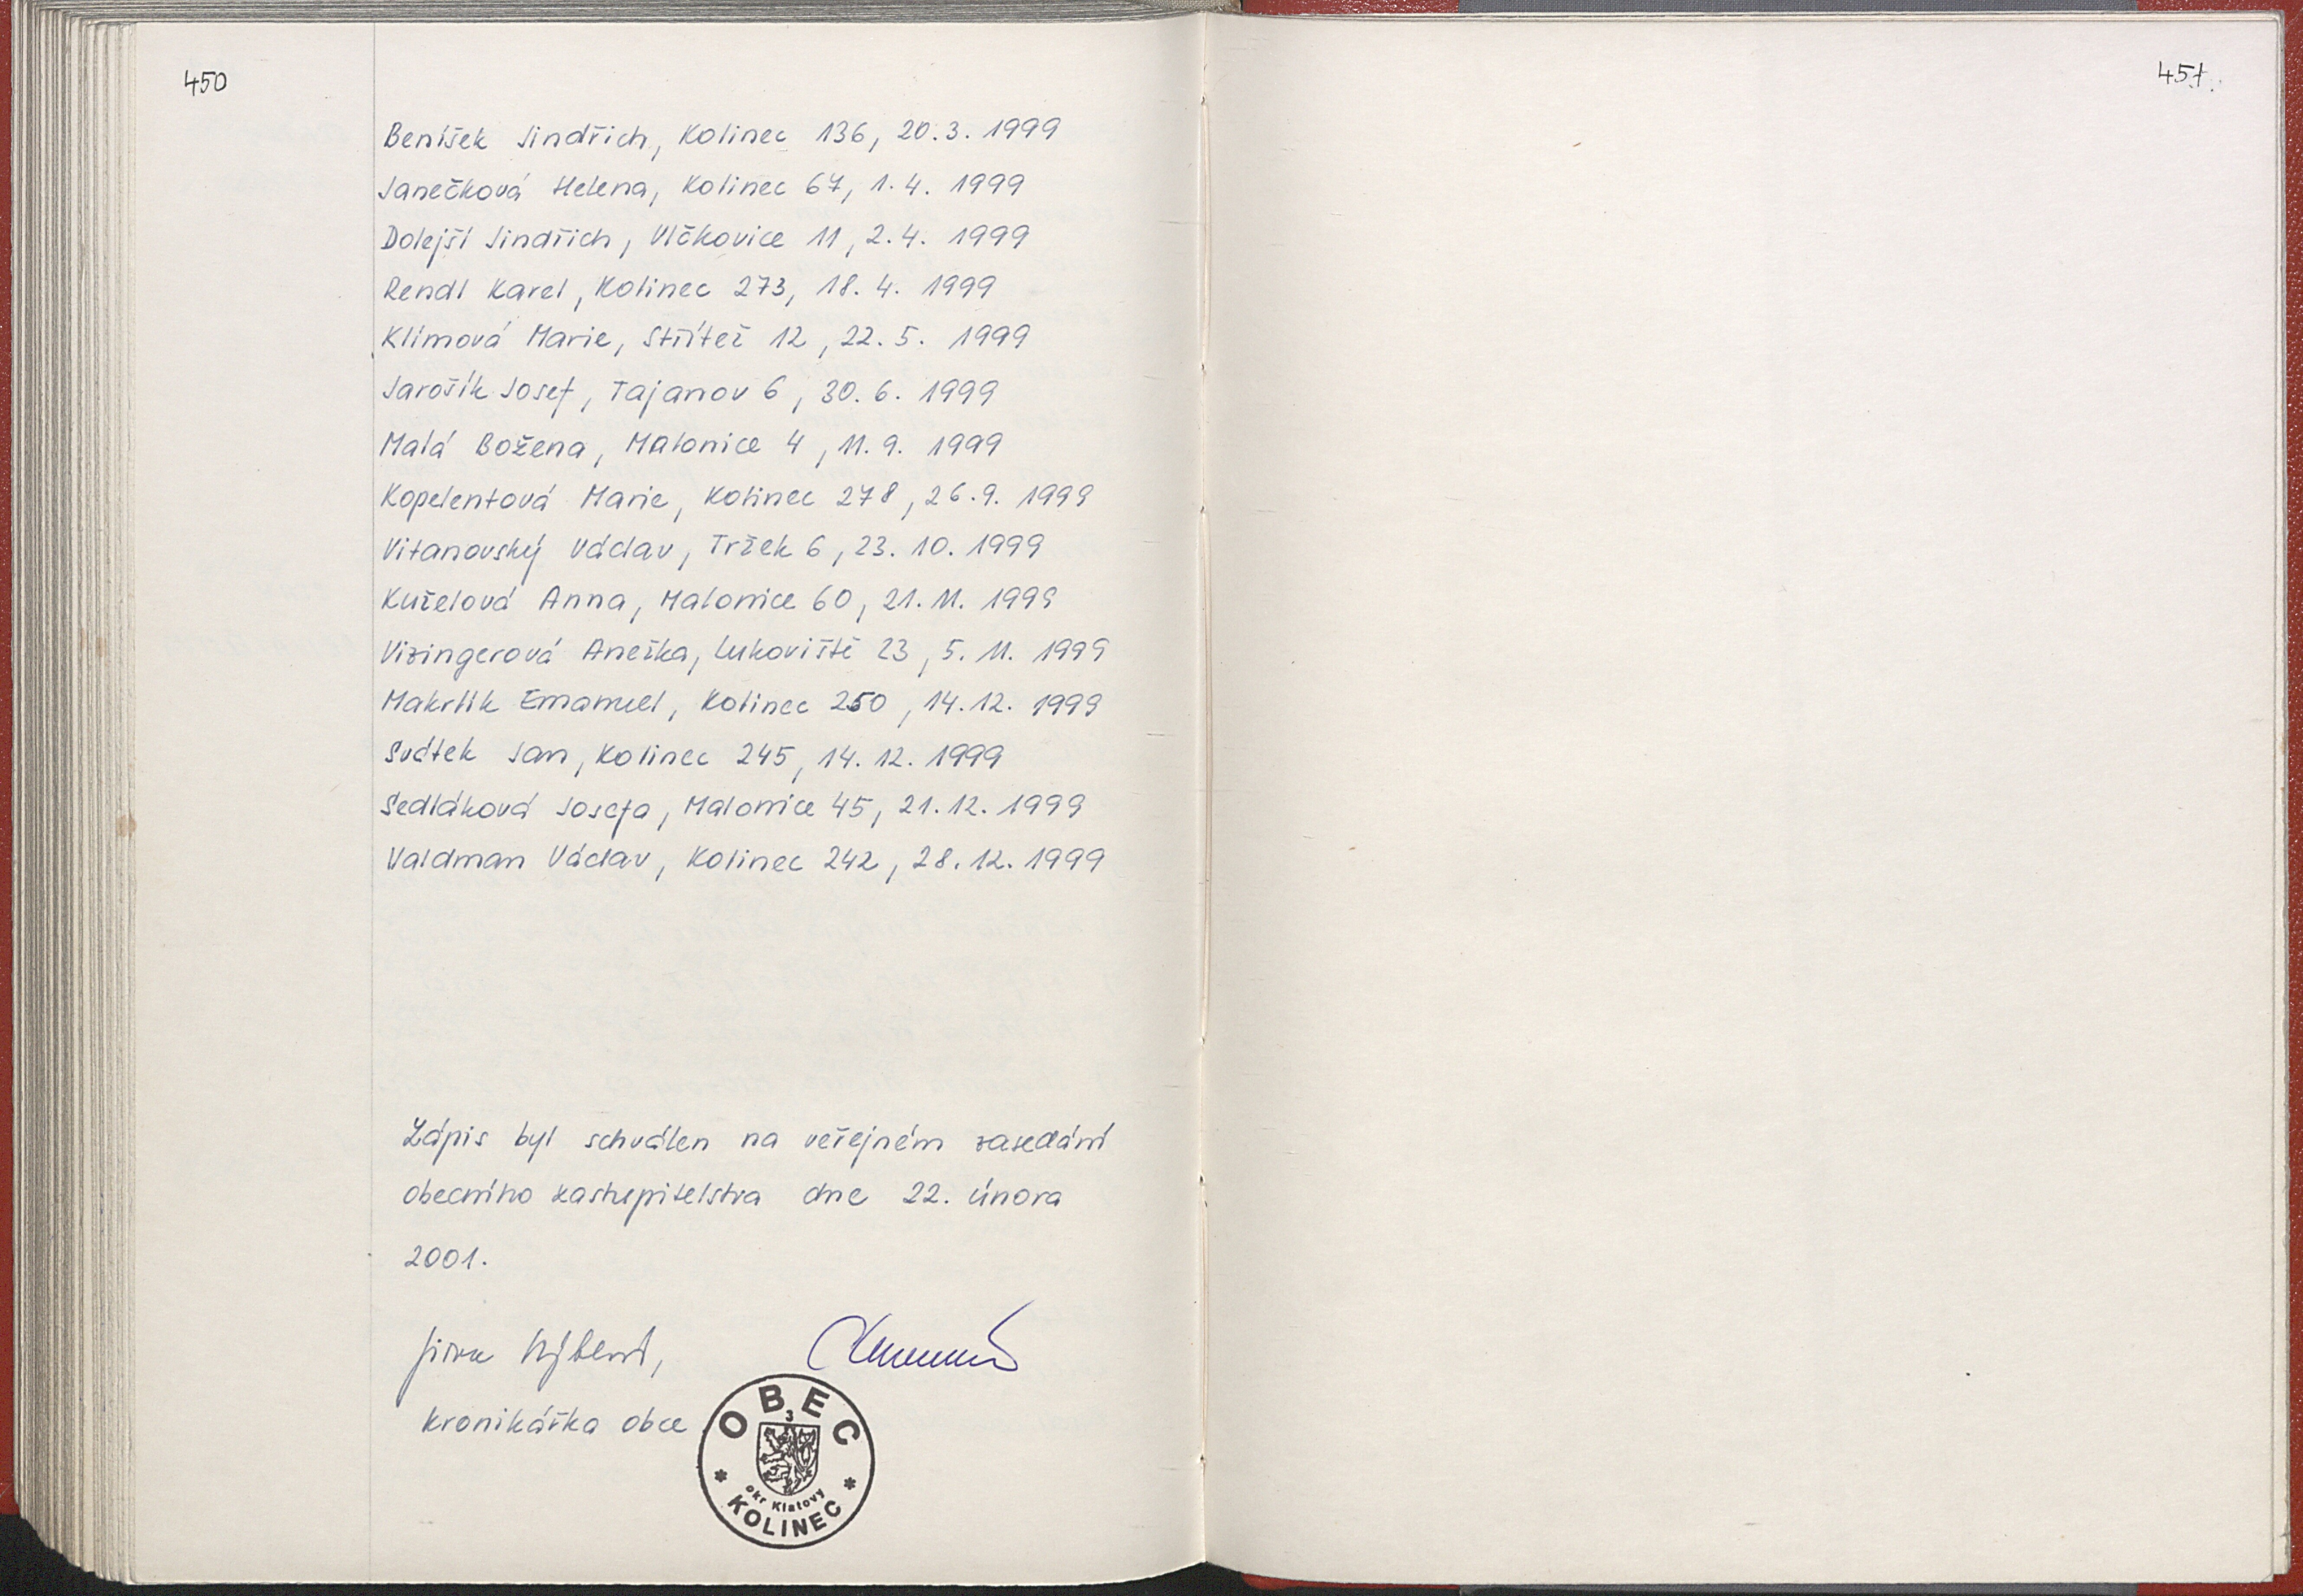 450
Beníšek Jindřich, Kolinec 136, 20.3. 1999
Janečková Helena, Kolinec 67, 1.4. 1999
Dolejší Jindřich, Vlčkovice 11, 2.4. 1999
Rendl Karel, Kolinec 273, 18.4. 1999
Klímová Marie, Střítež 12, 22.5. 1999
Jarošík Josef, Tajanov 6, 30.6. 1999
Malá Božena, Malonice 4, 11.9. 1999
Kopelentová Marie, Kolinec 278, 26.9. 1999
Vitanovský Václav, Tržek 6, 23.10. 1999
Kuželová Anna, Malonice 60, 21.11. 1999
Vizingerová Anežka, Lukoviště 23, 5.11. 1999
Makrlík Emanuel, Kolinec 250, 14.12. 1999
Svátek Jan, Kolinec 245, 14.12. 1999
Sedláková Josefa, Malonice 45, 21.12. 1999
Valdman Václav, Kolinec 242, 28.12. 1999
Zápis byl schválen na veřejném zasedání
obecního zastupitelstva dne 22. února
2001.
kronikářka obce
OBEC
3
okr Klatovy
KOLINEC
451.